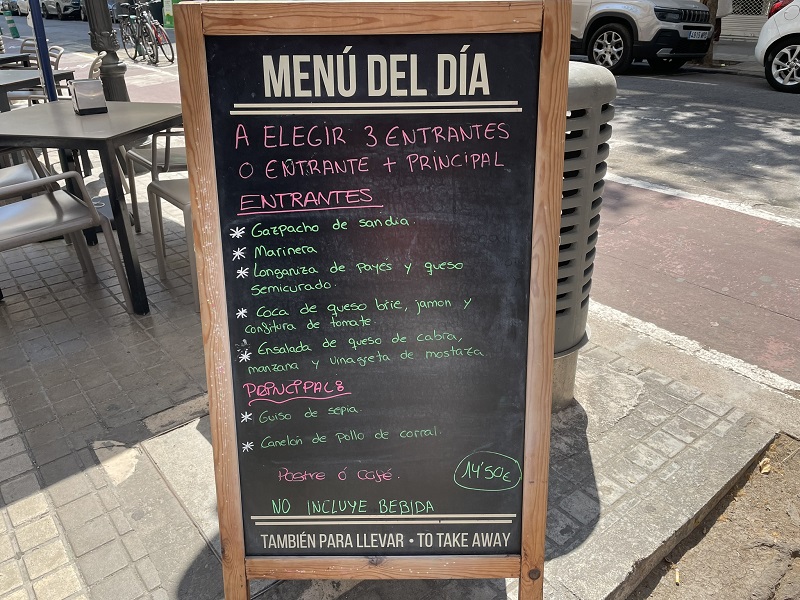 MENÚ DEL DÍA
A ELEGIR 3 ENTRANTES
O ENTRANTE + PRINCIPAL
ENTRANTES
* Gazpacho de sandia.
* Marinera
* Longaniza de payés y queso
semicurado.
* Coca de queso brie, jamon y
confitura de tomate.
* Ensalada de queso de cabra,
manzana y vinagreta de mostaza.
PRINCIPALS
* Guiso de sepia.
* Canelón de pollo de corral.
Postre ó Café.
14'50€
NO INCLUYE BEBIDA
TAMBIÉN PARA LLEVAR • TO TAKE AWAY